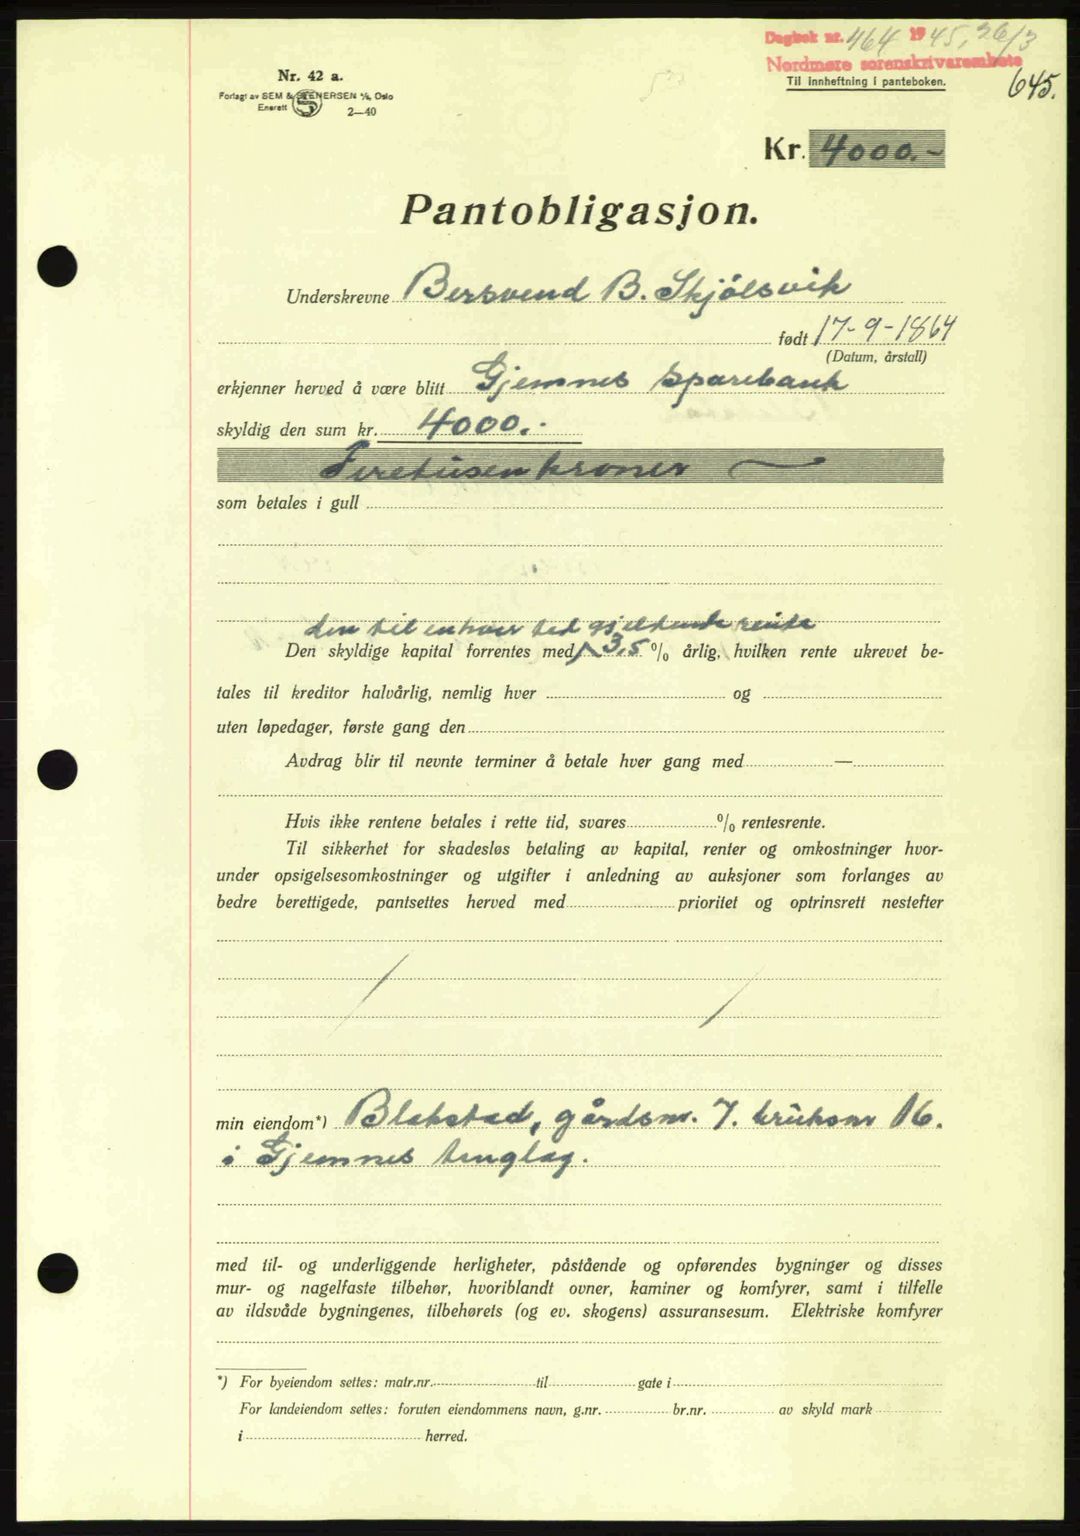 Dagbok nr. 464 1945, 26/3
Nordmøre sorenskrivarembete
Til innheftning i panteboken.
645.
Nr. 42 a.
Forlagt av SEM & STENERSEN A/S, Oslo
Enerett
2—40
Kr. 4000.-
Pantobligasjon.
Underskrevne Bersvend B. Skjölsvik
født 17-9-1864
(Datum, årstall)
erkjenner herved å være blitt Gjemnes Sparebank
skyldig den sum kr. 4000.-
Firetusen kroner
som betales i gull
den til enhver tid gjeldende rente
Den skyldige kapital forrentes med 3,5 % årlig, hvilken rente ukrevet be-
tales til kreditor halvårlig, nemlig hver og
uten løpedager, første gang den
Avdrag blir til nevnte terminer å betale hver gang med —
Hvis ikke rentene betales i rette tid, svares % rentesrente.
Til sikkerhet for skadesløs betaling av kapital, renter og omkostninger hvor-
under opsigelsesomkostninger og utgifter i anledning av auksjoner som forlanges av
bedre berettigede, pantsettes herved med prioritet og optrinsrett nestefter
min eiendom*) Blakstad, gårdsnr. 7. bruksnr 16.
i Gjemnes tinglag.
med til- og underliggende herligheter, påstående og opførendes bygninger og disses
mur- og nagelfaste tilbehør, hvoriblandt ovner, kaminer og komfyrer, samt i tilfelle
av ildsvåde bygningenes, tilbehørets (og ev. skogens) assuransesum. Elektriske komfyrer
*) For byeiendom settes: matr.nr. til gate i
For landeiendom settes: foruten eiendommens navn, g.nr. br.nr. av skyld mark
i herred.